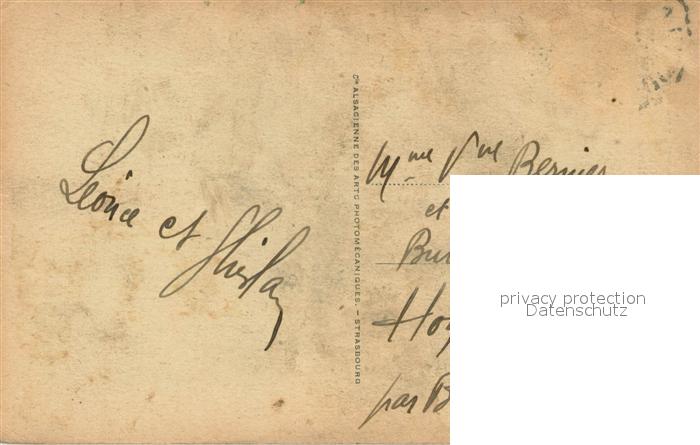 Léonce et Ghislain
Cie ALSACIENNE DES ARTS PHOTOMÉCANIQUES. — STRASBOURG
Mme Vve Bernier
et
par
privacy protection
Datenschutz